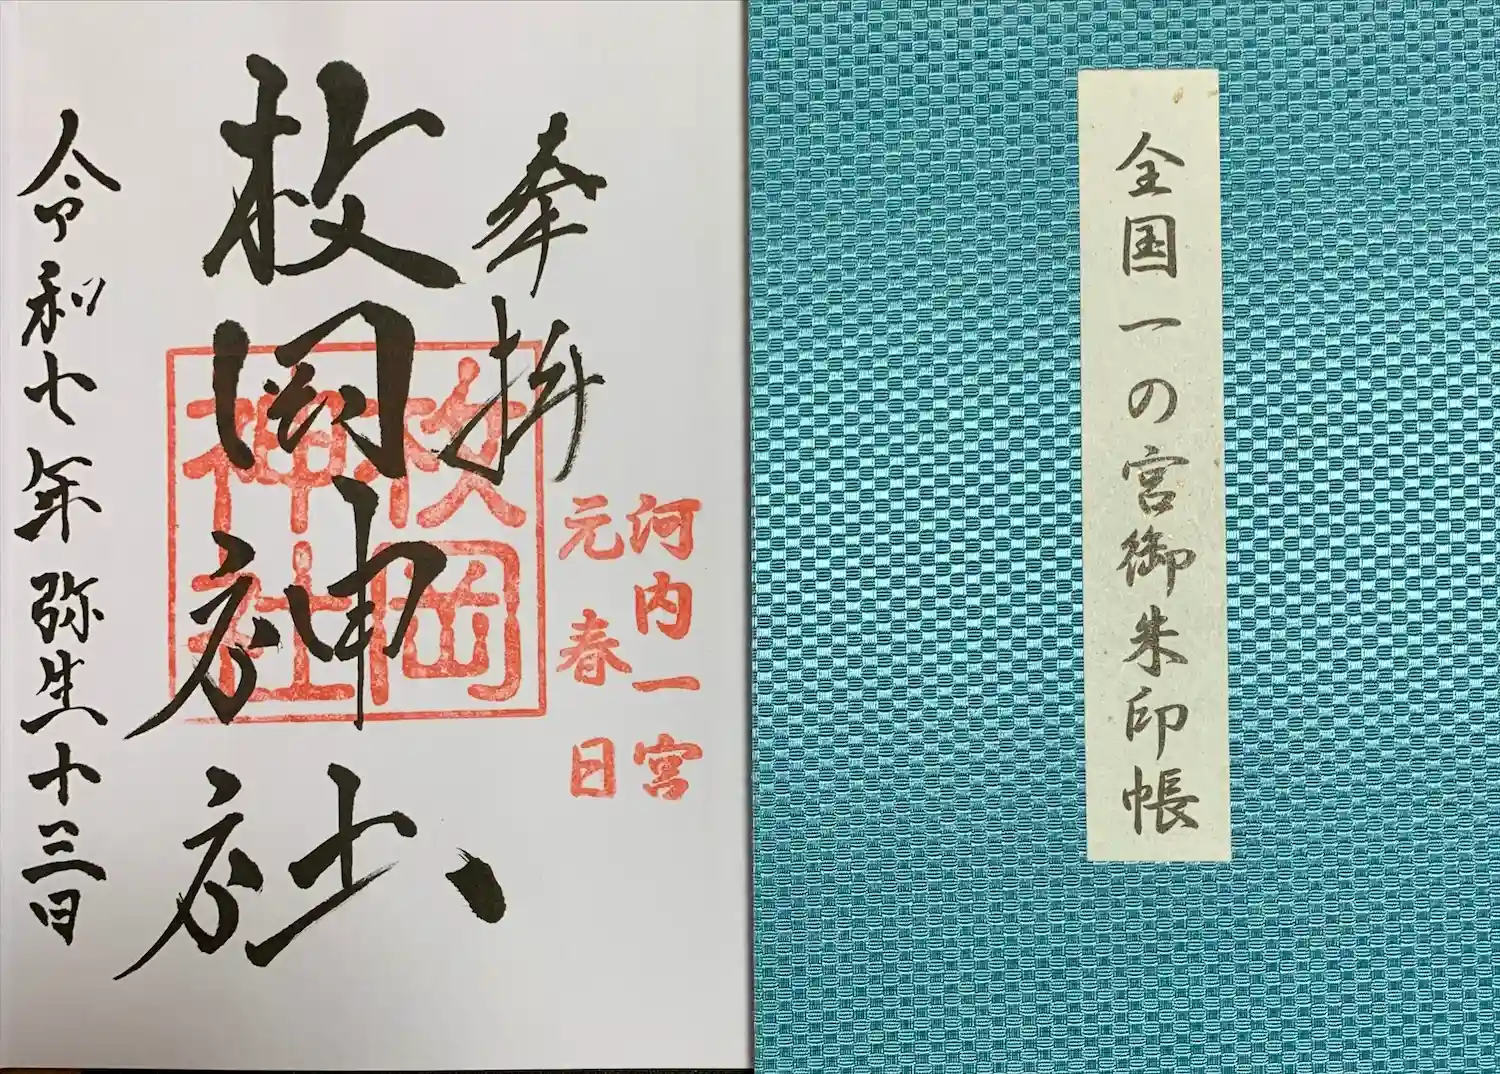 全国一の宮御朱印帳
奉拝
河内一宮
元春日
枚岡神社
枚岡
神社
令和七年弥生十三日